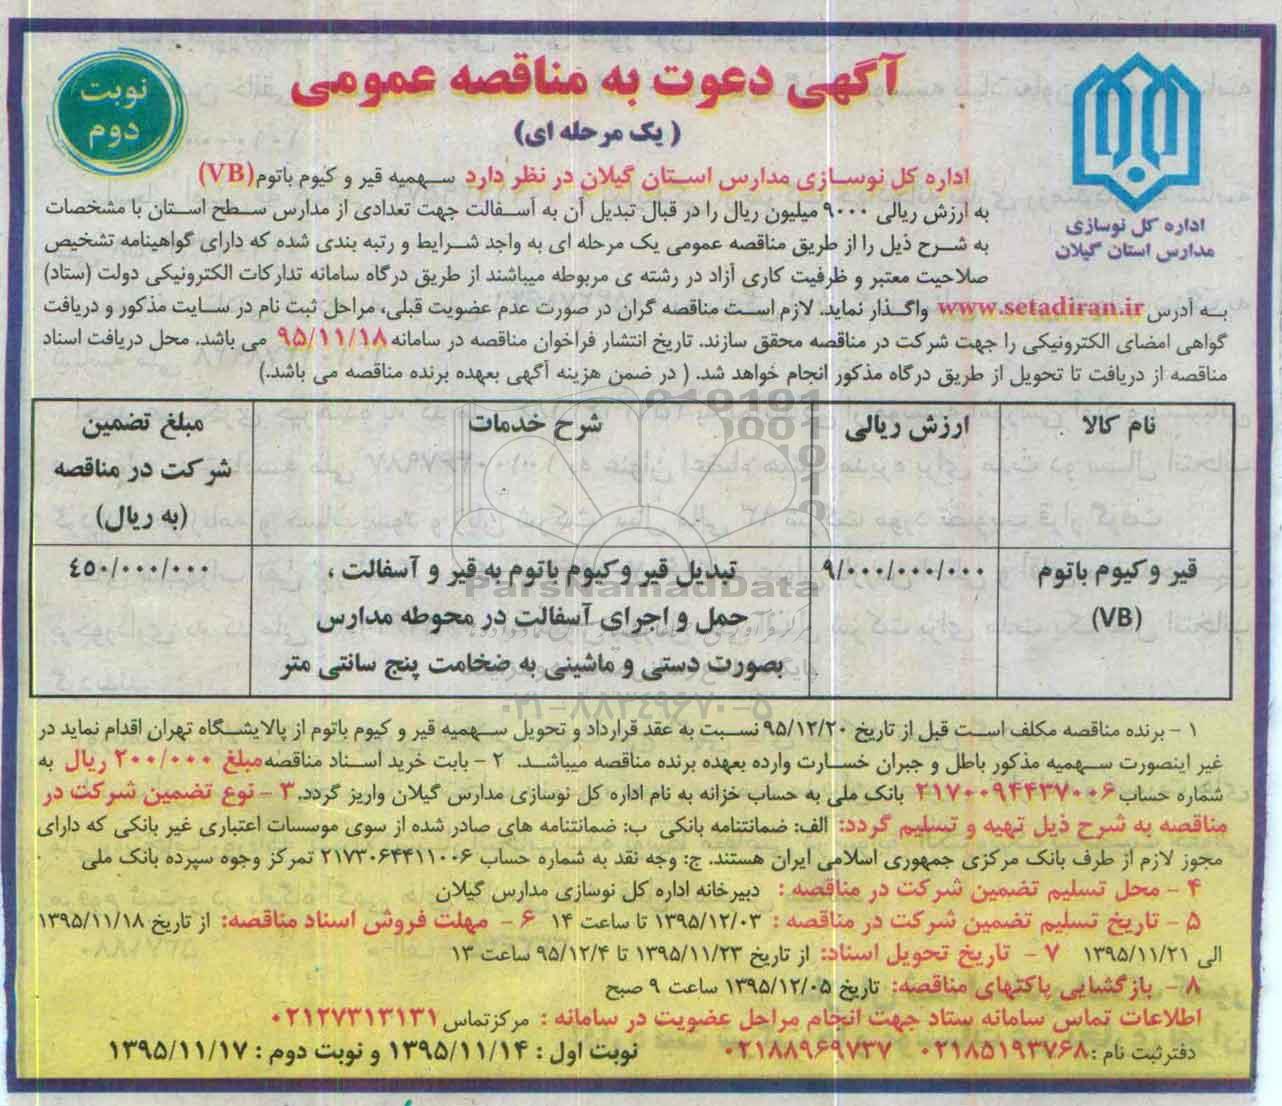 آگهی دعوت به مناقصه عمومی
( یک مرحله ای)
نوبت
دوم
اداره کل نوسازی
مدارس استان گیلان
اداره کل نوسازی مدارس استان گیلان در نظر دارد سهمیه قیر و کیوم باتوم (VB)
به ارزش ریالی ۹۰۰۰ میلیون ریال را در قبال تبدیل آن به آسفالت جهت تعدادی از مدارس سطح استان با مشخصات
به شرح ذیل را از طریق مناقصه عمومی یک مرحله ای به واجد شرایط و رتبه بندی شده که دارای گواهینامه تشخیص
صلاحیت معتبر و ظرفیت کاری آزاد در رشته ی مربوطه میباشند از طریق درگاه سامانه تدارکات الکترونیکی دولت (ستاد)
به آدرس www.setadiran.ir واگذار نماید. لازم است مناقصه گران در صورت عدم عضویت قبلی، مراحل ثبت نام در سایت مذکور و دریافت
گواهی امضای الکترونیکی را جهت شرکت در مناقصه محقق سازند. تاریخ انتشار فراخوان مناقصه در سامانه ۹۵/۱۱/۱۸ می باشد. محل دریافت اسناد
مناقصه از دریافت تا تحویل از طریق درگاه مذکور انجام خواهد شد. ( در ضمن هزینه آگهی بعهده برنده مناقصه می باشد.)
نام کالا
ارزش ریالی
شرح خدمات
مبلغ تضمین
شرکت در مناقصه
(به ریال)
قیر و کیوم باتوم
(VB)
۹/۰۰۰/۰۰۰/۰۰۰
تبدیل قیر و کیوم باتوم به قیر و آسفالت ،
حمل و اجرای آسفالت در محوطه مدارس
بصورت دستی و ماشینی به ضخامت پنج سانتی متر
۴۵۰/۰۰۰/۰۰۰
ParsNamadData
۰۲۱-۸۸۳۴۹۶۷۰-۵
۱ - برنده مناقصه مکلف است قبل از تاریخ ۹۵/۱۲/۲۰ نسبت به عقد قرارداد و تحویل سهمیه قیر و کیوم باتوم از پالایشگاه تهران اقدام نماید در
غیر اینصورت سهمیه مذکور باطل و جبران خسارت وارده بعهده برنده مناقصه میباشد. ۲ - بابت خرید اسناد مناقصه مبلغ ۲۰۰/۰۰۰ ریال به
شماره حساب ۲۱۷۰۰۹۴۴۳۷۰۰۶ بانک ملی به حساب خزانه به نام اداره کل نوسازی مدارس گیلان واریز گردد. ۳ - نوع تضمین شرکت در
مناقصه به شرح ذیل تهیه و تسلیم گردد: الف: ضمانتنامه بانکی ب: ضمانتنامه های صادر شده از سوی موسسات اعتباری غیر بانکی که دارای
مجوز لازم از طرف بانک مرکزی جمهوری اسلامی ایران هستند. ج: وجه نقد به شماره حساب ۲۱۷۳۰۶۴۴۱۱۰۰۶ تمرکز وجوه سپرده بانک ملی
۴ - محل تسلیم تضمین شرکت در مناقصه : دبیرخانه اداره کل نوسازی مدارس گیلان
۵ - تاریخ تسلیم تضمین شرکت در مناقصه : ۱۳۹۵/۱۲/۰۳ تا ساعت ۱۴ ۶ - مهلت فروش اسناد مناقصه: از تاریخ ۱۳۹۵/۱۱/۱۸
الی ۱۳۹۵/۱۱/۲۱ ۷ - تاریخ تحویل اسناد: از تاریخ ۱۳۹۵/۱۱/۲۳ تا ۹۵/۱۲/۴ ساعت ۱۳
۸ - بازگشایی پاکتهای مناقصه: تاریخ ۱۳۹۵/۱۲/۰۵ ساعت ۹ صبح
اطلاعات تماس سامانه ستاد جهت انجام مراحل عضویت در سامانه : مرکز تماس ۰۲۱۲۷۳۱۳۱۳۱
دفتر ثبت نام : ۰۲۱۸۵۱۹۳۷۶۸ ۰۲۱۸۸۹۶۹۷۳۷ نوبت اول : ۱۳۹۵/۱۱/۱۴ و نوبت دوم : ۱۳۹۵/۱۱/۱۷